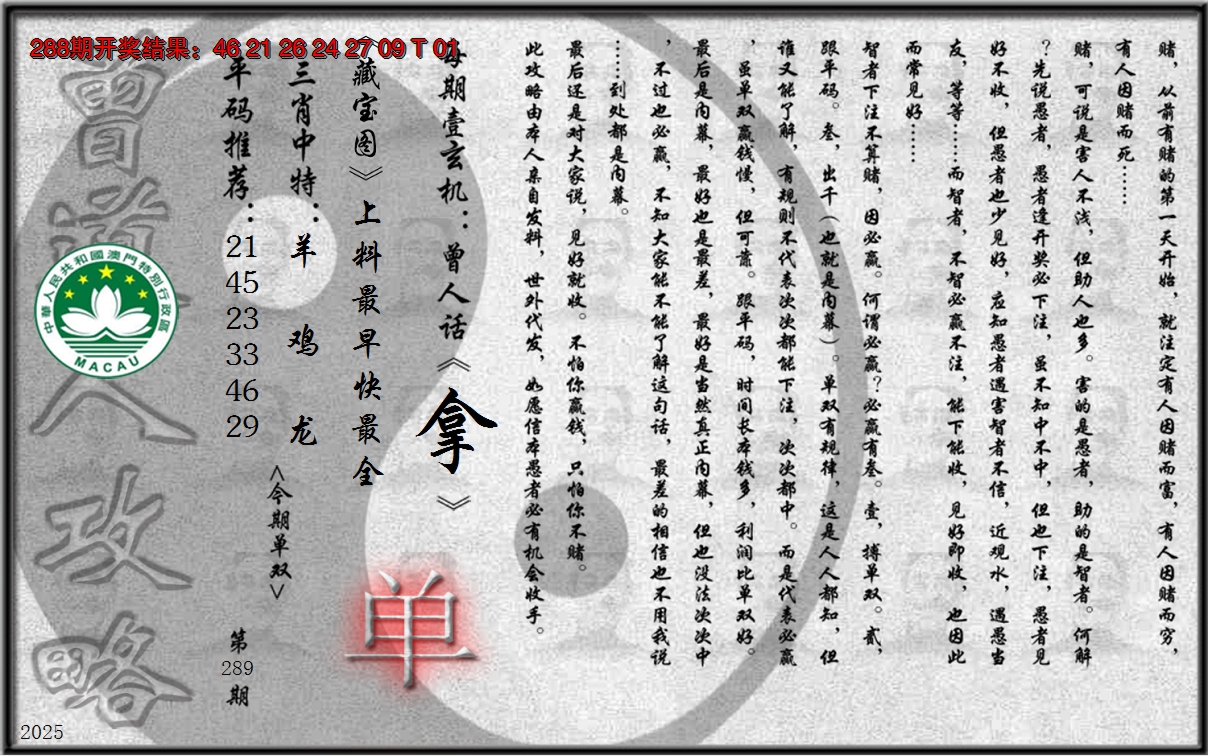 288期开奖结果：46 21 26 24 27 09 T 01
赌，从前有赌的第一天开始，就注定有人因赌而富，有人因赌而穷，
有人因赌而死……
赌，可说是害人不浅，但助人也多。害的是愚者，助的是智者。何解
？先说愚者，愚者逢开奖必下注，虽不知中不中，但也下注，愚者见
好不收，但愚者也少见好，应知愚者遇害智者不信，近观水，遇愚当
友，等等……而智者，不智必赢不注，能下能收，见好即收，也因此
而常见好……
智者下注不算赌，因必赢。何谓必赢？必赢有叁。壹，搏单双。贰，
跟平码。叁，出千（也就是内幕）。单双有规律，这是人人都知，但
谁又能了解，有规则不代表次次都能下注，次次都中。而是代表必赢
，虽单双赢钱慢，但可靠。跟平码，时间长本钱多，利润比单双好。
最后是内幕，最好也是最差，最好是当然真正内幕，但也没法次次中
，不过也必赢，不知大家能不能了解这句话，最差的相信也不用我说
……到处都是内幕。
最后还是对大家说，见好就收。不怕你赢钱，只怕你不赌。
此攻略由本人亲自发料，世外代发，如愿信本愚者必有机会收手。
每期壹玄机：曾人话《拿》
《藏宝图》上料最早快最全
单
三肖中特：羊 鸡 龙
<今期单双>
平码推荐：21 45 23 33 46 29
第289期
曾道人攻略
中華人民共和國澳門特別行政區
MACAU
2025